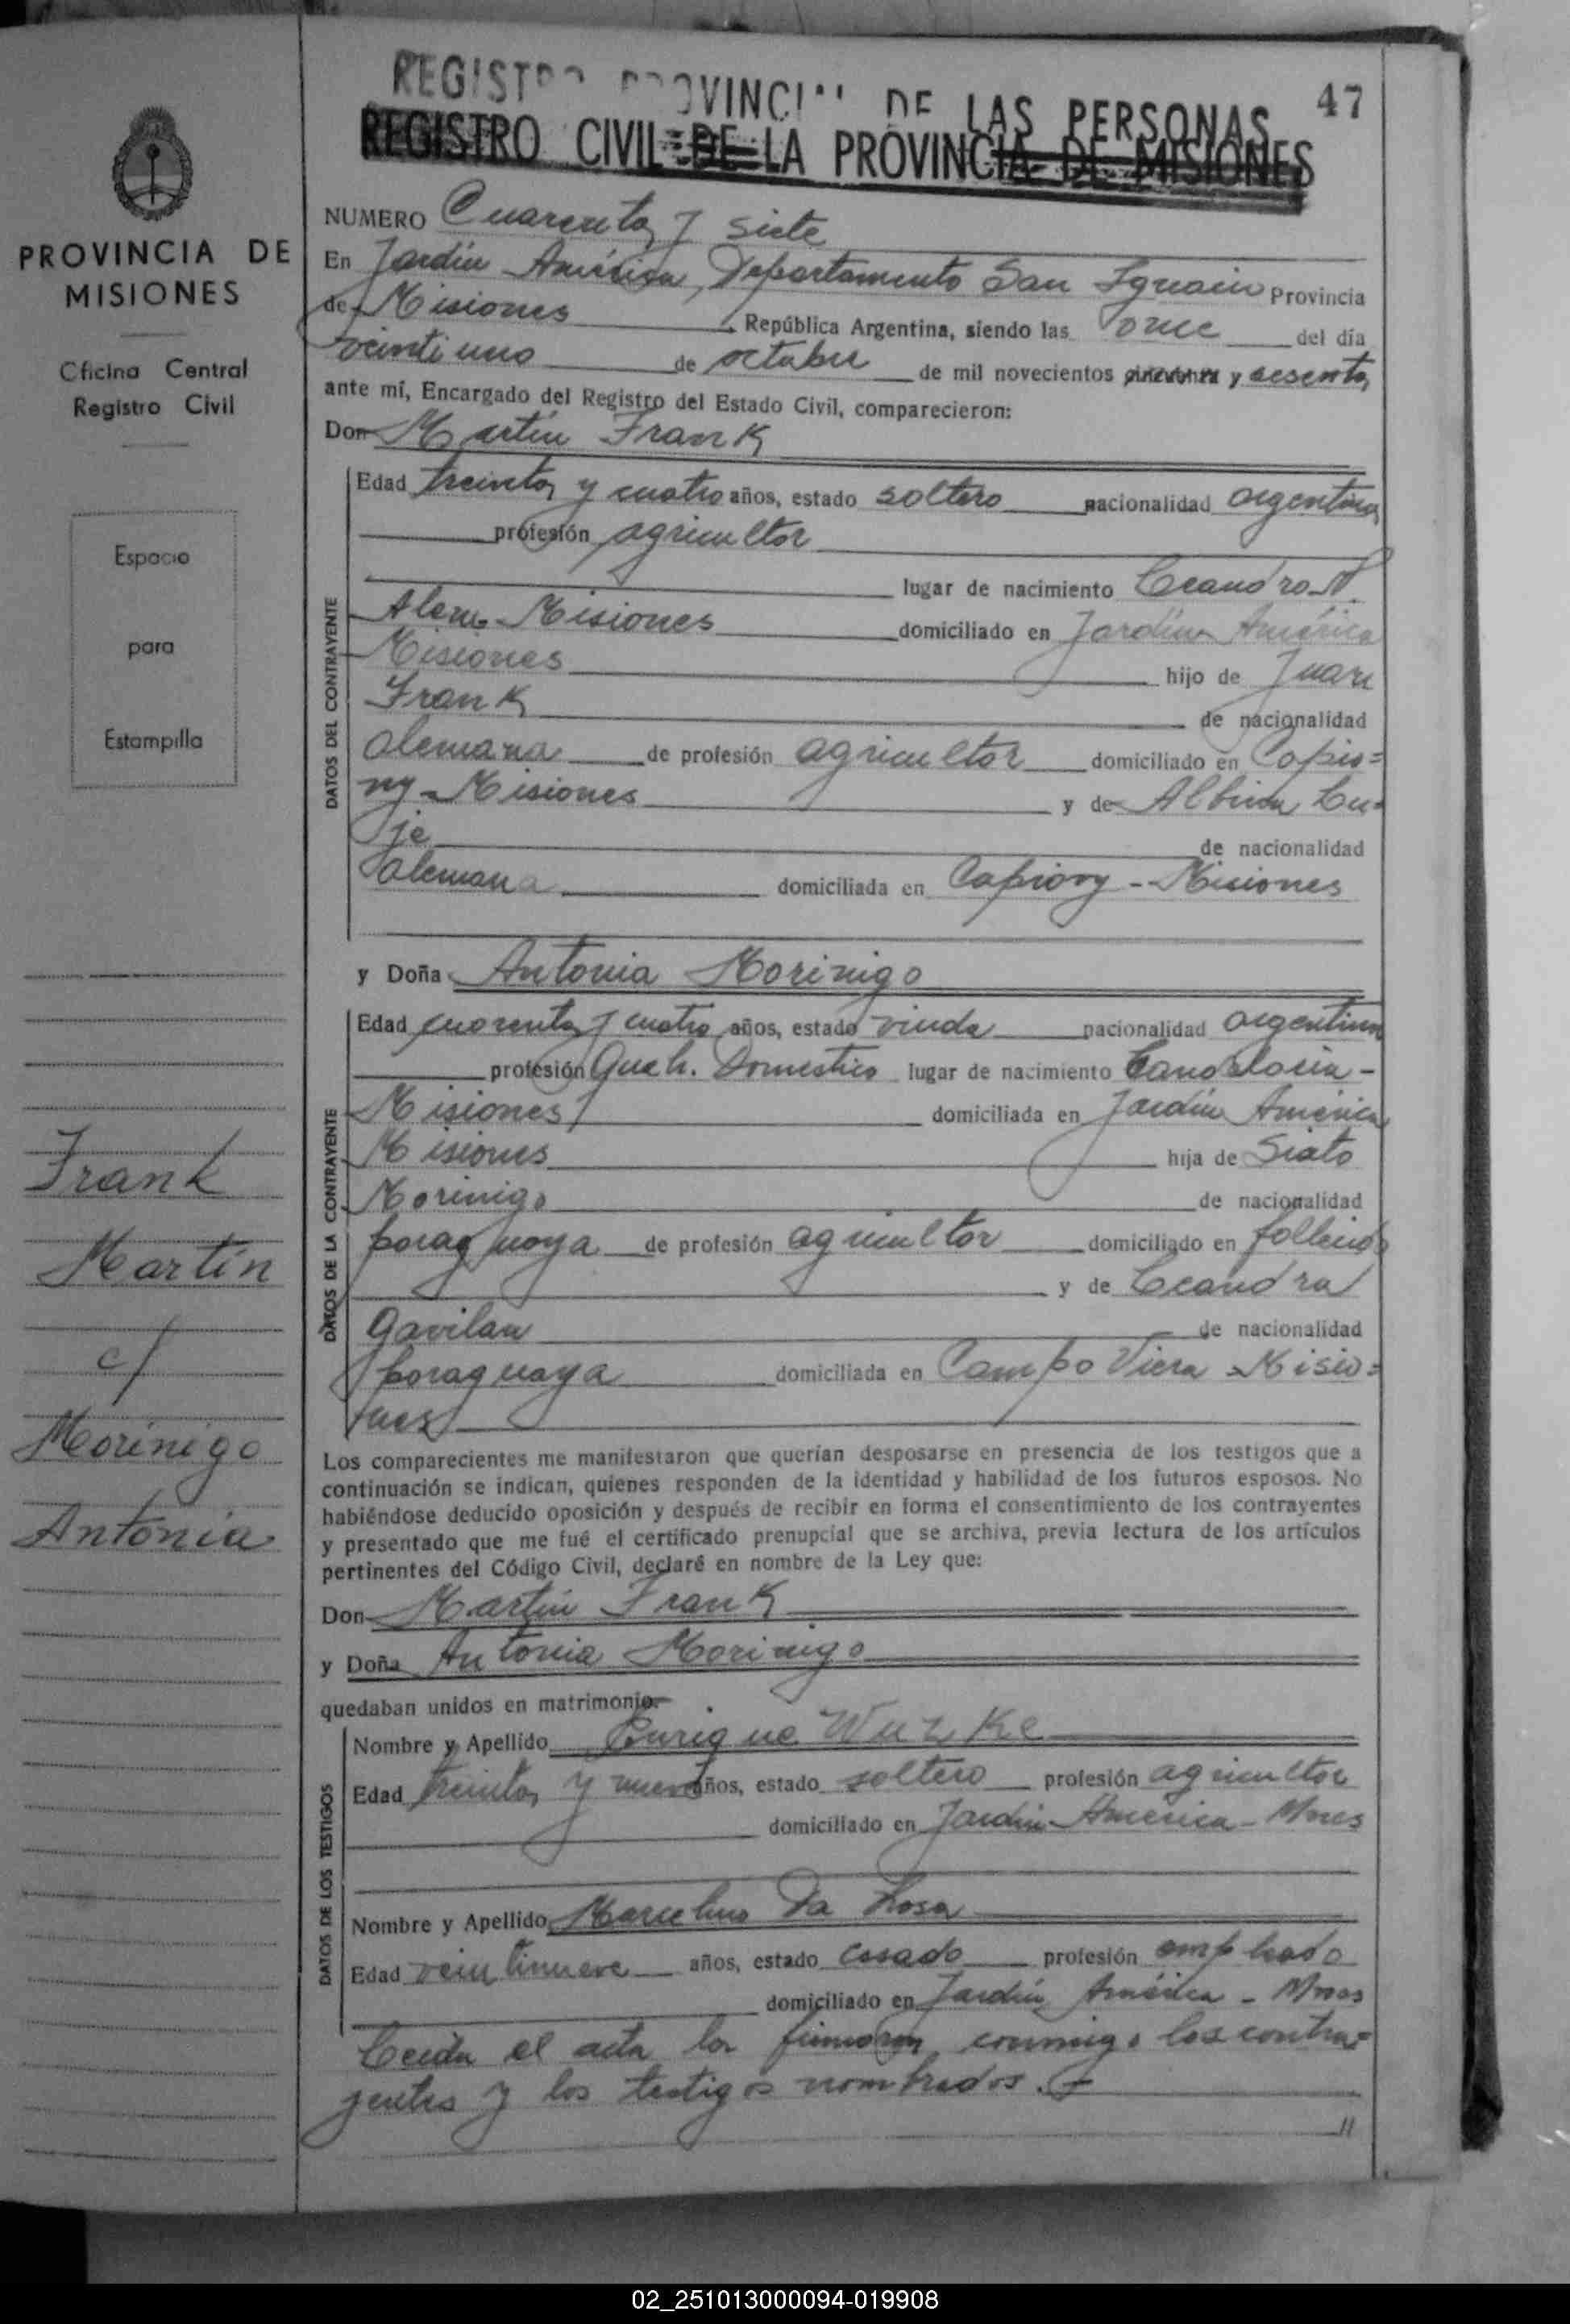 47
REGISTRO PROVINCIAL DE LAS PERSONAS
REGISTRO CIVIL DE LA PROVINCIA DE MISIONES
PROVINCIA DE
MISIONES
Oficina Central
Registro Civil
Espacio
para
Estampilla
Frank
Martín
c/
Morinigo
Antonia
NUMERO Cuarenta y siete
En Jardín América, Departamento San Ignacio Provincia
de Misiones República Argentina, siendo las once del día
veintiuno de octubre de mil novecientos cincuenta y sesenta,
ante mí, Encargado del Registro del Estado Civil, comparecieron:
Don Martín Frank
DATOS DEL CONTRAYENTE
Edad treinta y cuatro años, estado soltero nacionalidad argentina
profesión agricultor
lugar de nacimiento Leandro N.
Alem - Misiones domiciliado en Jardín América
Misiones hijo de Juan
Frank de nacionalidad
alemana de profesión agricultor domiciliado en Capio=
vy - Misiones y de Albina Lu=
je de nacionalidad
alemana domiciliada en Capiovy - Misiones
y Doña Antonia Morinigo
DATOS DE LA CONTRAYENTE
Edad cuarenta y cuatro años, estado viuda nacionalidad argentina
profesión Queh. Domestico lugar de nacimiento Candelaria -
Misiones domiciliada en Jardín América
Misiones hija de Sixto
Morinigo de nacionalidad
paraguaya de profesión agricultor domiciliado en fallecido
y de Leandra
Gavilan de nacionalidad
paraguaya domiciliada en Campo Viera - Misio=
nes
Los comparecientes me manifestaron que querían desposarse en presencia de los testigos que a
continuación se indican, quienes responden de la identidad y habilidad de los futuros esposos. No
habiéndose deducido oposición y después de recibir en forma el consentimiento de los contrayentes
y presentado que me fué el certificado prenupcial que se archiva, previa lectura de los artículos
pertinentes del Código Civil, declaré en nombre de la Ley que:
Don Martín Frank
y Doña Antonia Morinigo
quedaban unidos en matrimonio.
DATOS DE LOS TESTIGOS
Nombre y Apellido Enrique Wuzke
Edad treinta y nueve años, estado soltero profesión agricultor
domiciliado en Jardín América - Mnes
Nombre y Apellido Marcelino Da Rosa
Edad veintinueve años, estado casado profesión empleado
domiciliado en Jardín América - Mnes
Leida el acta la firmaron conmigo los contra=
yentes y los testigos nombrados.-
//
02_251013000094-019908